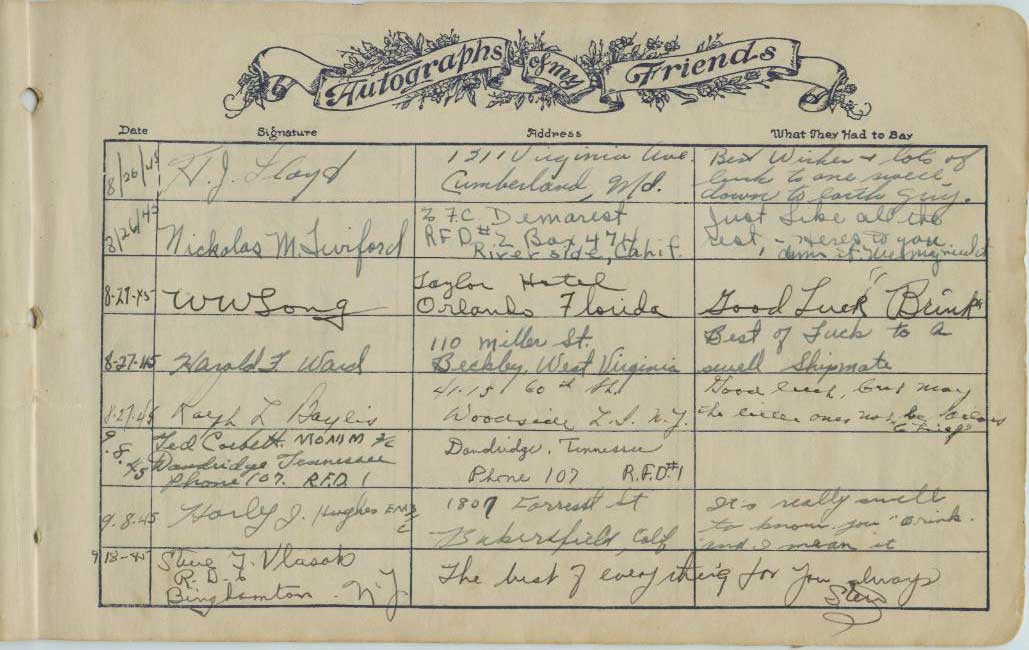 Autographs of my Friends
Date Signature Address What They Had to Say
8/26/45 H. J. Lloyd 1311 Virginia Ave. Best Wishes & lots of
Cumberland, Md. luck to one swell
down to earth guy.
8/26/45 Nickolas M. Twiford % F.C. Demarest Just like all the
RFD #2 Box 474 rest, - Heres to you
Riverside, Calif. damn it
8-27-45 W W Long Taylor Hotel
Orlando Florida Good Luck "Brink"
8-27-45 Harold F Ward 110 Miller St. Best of Luck to a
Beckley, West Virginia swell Shipmate
8-27-45 Ralph L Baylis 41-15 60th St. Good luck, but may
Woodside L.I. N.Y. the little ones not be
9.8.45 Ted Corbett MOMM 3/C Dandridge, Tennessee
Dandridge Tennessee Phone 107 R.F.D.#1
Phone 107. R.F.D. 1
9.8.45 Harly J. Hughes EM 1807 Forrest St It's really swell
Bakersfield, Calif to know you "Brink"
and I mean it
9-13-45 Steve F. Vlasak The best of everything for you always
R.D. 6 Steve
Binghamton - N.Y